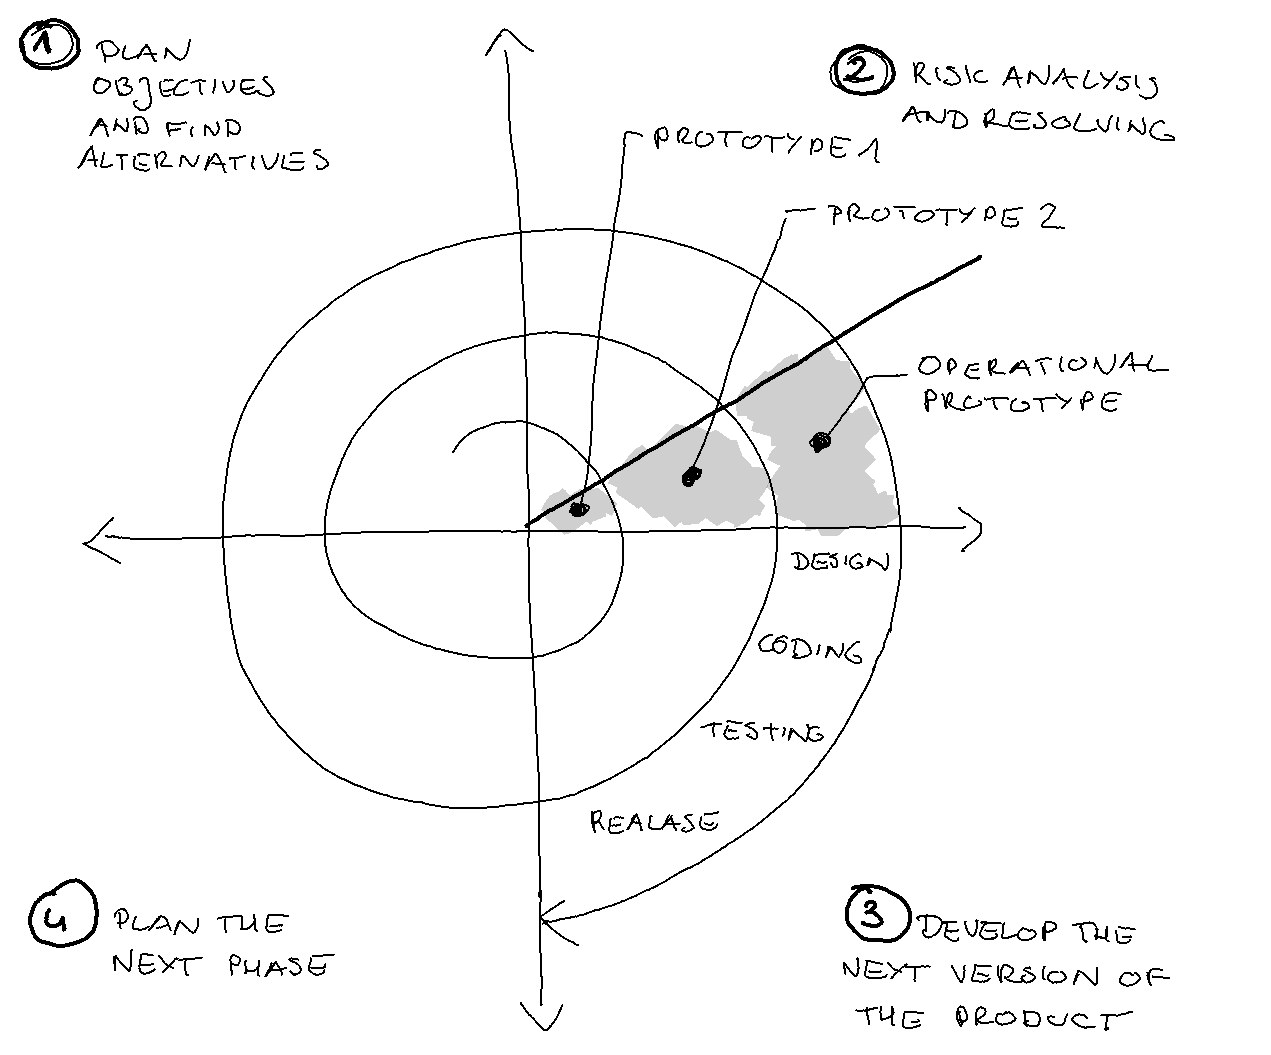 1
PLAN
OBJECTIVES
AND FIND
ALTERNATIVES
2
RISK ANALYSIS
AND RESOLVING
PROTOTYPE 1
PROTOTYPE 2
OPERATIONAL
PROTOTYPE
DESIGN
CODING
TESTING
REALASE
4
PLAN THE
NEXT PHASE
3
DEVELOP THE
NEXT VERSION OF
THE PRODUCT